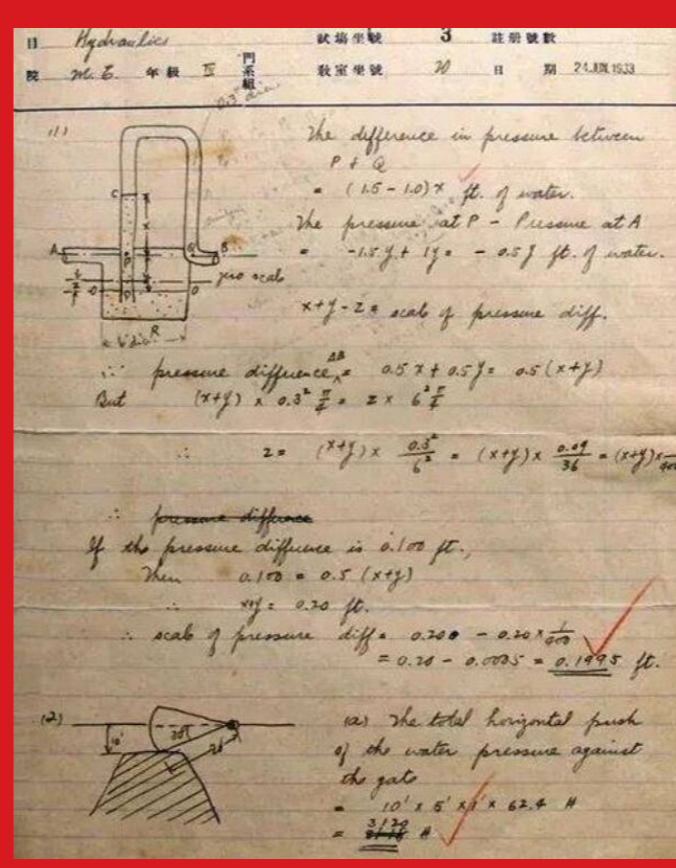 目 Hydraulics 試場坐號 3 註册號數
院 M. E. 年級 IV 門系組 教室坐號 20 日期 24 JUN 1933
0.3" dia.
(1)
The difference in pressure between
P & Q
= (1.5 - 1.0)x ft. of water.
The pressure at P - Pressure at A
= -1.5y + 1y = - 0.5y ft. of water.
C
A
B
zero scale
O
O
R
6" dia.
x+y-z = scale of pressure diff.
∴ pressure difference AB = 0.5x + 0.5y = 0.5(x+y)
But (x+y) × 0.3² π/4 = z × 6² π/4
∴ z = (x+y) × 0.3²/6² = (x+y) × 0.09/36 = (x+y) × 1/400
∴ pressure difference
If the pressure difference is 0.100 ft.,
Then 0.100 = 0.5 (x+y)
∴ x+y = 0.20 ft.
∴ scale of pressure diff = 0.200 - 0.20 × 1/400
= 0.20 - 0.0005 = 0.1995 ft.
(2)
10'
30°
20'
(a) The total horizontal push
of the water pressure against
the gate
= 10' x 5' x 1' x 62.4 #
3120
= #